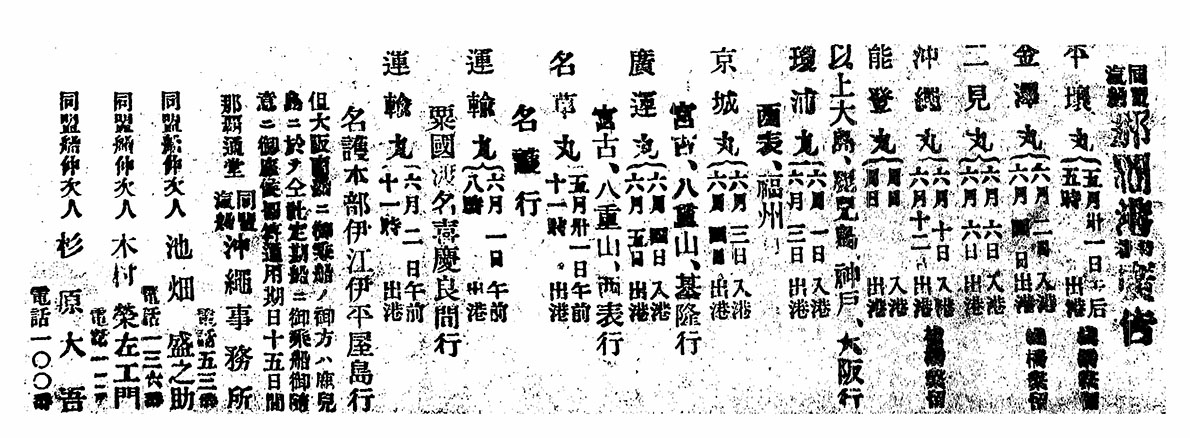 同盟汽船 那覇港 信
平壤丸 五月卅一日午后五時出港 棧橋繫留
金澤丸 六月二日入港 六月四日出港 棧橋繫留
二見丸 六月六日入港 六月六日出港
沖繩丸 六月十日入港 六月十二 出港 棧橋繫留
能登丸 入港 出港
以上大島、鹿兒島、神戶、大阪行
瓊浦丸 六月一日入港 六月三日出港
西表、福州
京城丸 六月三日入港 六月四日出港
宮古、八重山、基隆行
廣運丸 六月四日入港 六月五日出港
宮古、八重山、西表行
名草丸 五月卅一日午前十一時出港
名護行
運輸丸 六月一日午前八時出港
粟國 名喜慶良間行
運輸丸 六月二日午前十一時出港
名護本部伊江伊平屋島行
但大阪 ニ御乘船ノ御方ハ鹿兒
島ニ於テ仝社定期船ニ御乘船御隨
意ニ御座候 通用期日十五日間
那覇通堂 同盟汽船 沖繩事務所
電話五三番
同盟船仲次人 池畑盛之助
電話一三六番
同盟船仲次人 木村榮左工門
電話一一二
同盟船仲次人 杉原大吾
電話一〇〇番